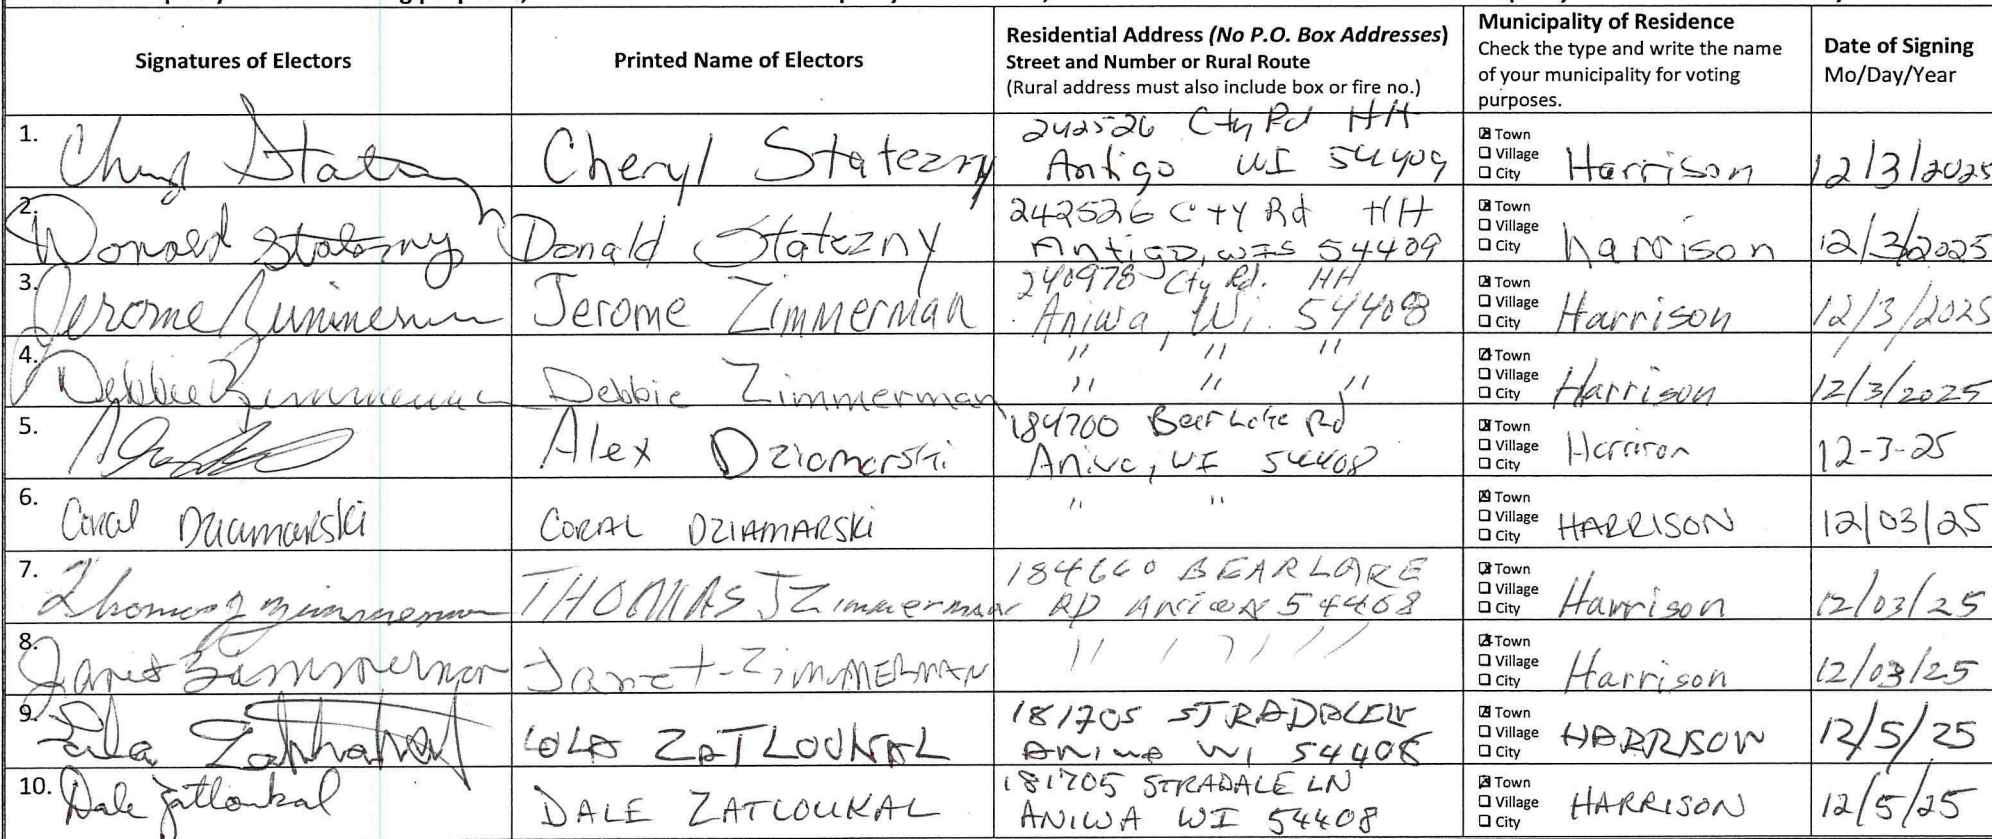 Signatures of Electors
Printed Name of Electors
Residential Address (No P.O. Box Addresses)
Street and Number or Rural Route
(Rural address must also include box or fire no.)
Municipality of Residence
Check the type and write the name
of your municipality for voting
purposes.
Date of Signing
Mo/Day/Year
1.
Cheryl Statezny
242526 Cty Rd HH
Antigo WI 54409
Town
Village
City
Harrison
12/3/2025
2.
Donald Statezny
Donald Statezny
242526 Cty Rd HH
Antigo, WIS 54409
Town
Village
City
harrison
12/3/2025
3.
Jerome Zimmerman
Jerome Zimmerman
240978 Cty Rd. HH
Aniwa, Wi. 54408
Town
Village
City
Harrison
12/3/2025
4.
Debbie Zimmerman
Debbie Zimmerman
" " "
" " "
Town
Village
City
Harrison
12/3/2025
5.
Alex Dziamarski
184700 Bear Lake Rd
Aniwa, WI 54408
Town
Village
City
Harrison
12-3-25
6.
Coral Dziamarski
CORAL DZIAMARSKI
" "
Town
Village
City
HARRISON
12/03/25
7.
Thomas J Zimmerman
THOMAS J Zimmerman
184660 BEAR LAKE
RD 54408
Town
Village
City
Harrison
12/03/25
8.
Janet Zimmerman
Janet ZimMERMAN
Town
Village
City
Harrison
12/03/25
9.
Lola Zatloukal
LOLA ZATLOUKAL
181705 STRADALE LN
ANIWA WI 54408
Town
Village
City
HARRISON
12/5/25
10.
Dale Zatloukal
DALE ZATLOUKAL
181705 STRADALE LN
ANIWA WI 54408
Town
Village
City
HARRISON
12/5/25